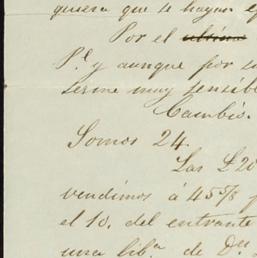 quiera que te hayan
Por el ultimo
P.l y aunque por
serme muy sensible
Cambio.
Somos 24.
Las L20
vendimos á 45 5/8
el 10. del entrante
una lib.a de D.n